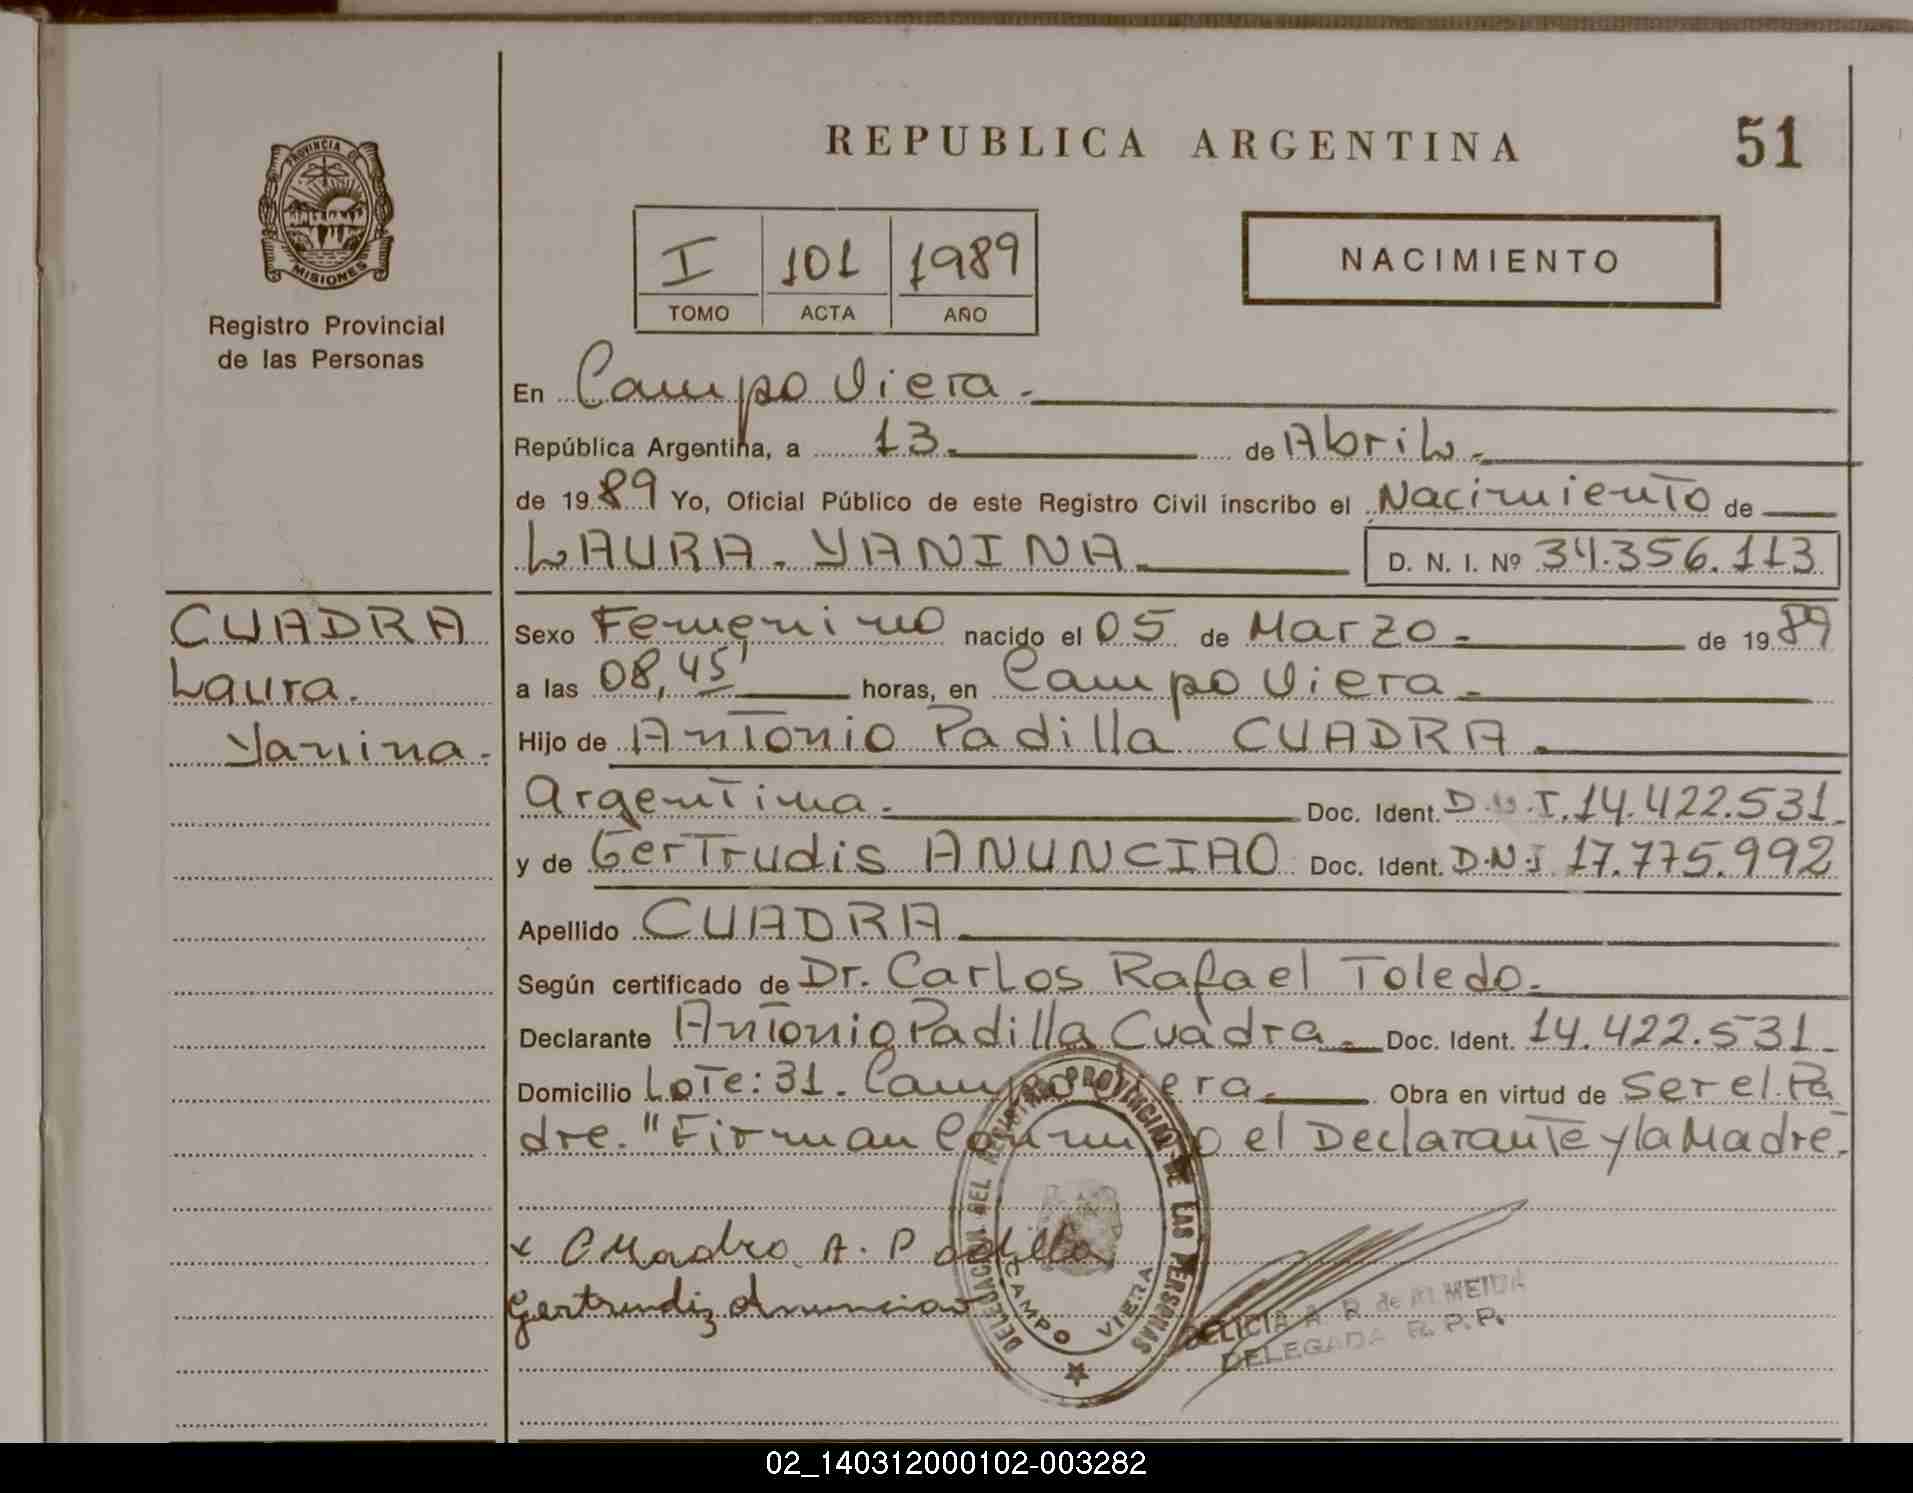 REPUBLICA ARGENTINA
51
PROVINCIA DE
MISIONES
Registro Provincial
de las Personas
I 101 1989
TOMO ACTA AÑO
NACIMIENTO
En Campo Viera.
República Argentina, a 13. de Abril.
de 1989 Yo, Oficial Público de este Registro Civil inscribo el Nacimiento de
LAURA. YANINA. D. N. I. Nº 34.356.113
CUADRA
Laura.
Yanina.
Sexo Femenino nacido el 05 de Marzo. de 1989
a las 08,45' horas, en Campo Viera.
Hijo de Antonio Padilla CUADRA.
Argentina. Doc. Ident. D.N.I. 14.422.531.
y de Gertrudis ANUNCIAO Doc. Ident. D.N.I 17.775.992
Apellido CUADRA.
Según certificado de Dr. Carlos Rafael Toledo.
Declarante Antonio Padilla Cuadra. Doc. Ident. 14.422.531.
Domicilio Lote: 31. Campo Viera. Obra en virtud de ser el Pa
dre. "Firman el Declarante y la Madre.
x Cuadro A. Padilla
Gertrudiz Anunciao
DELEGACION DEL REGISTRO PROVINCIAL DE LAS PERSONAS
CAMPO VIERA
DELICIA A. R. de ALMEIDA
DELEGADA R. P. P.
02_140312000102-003282